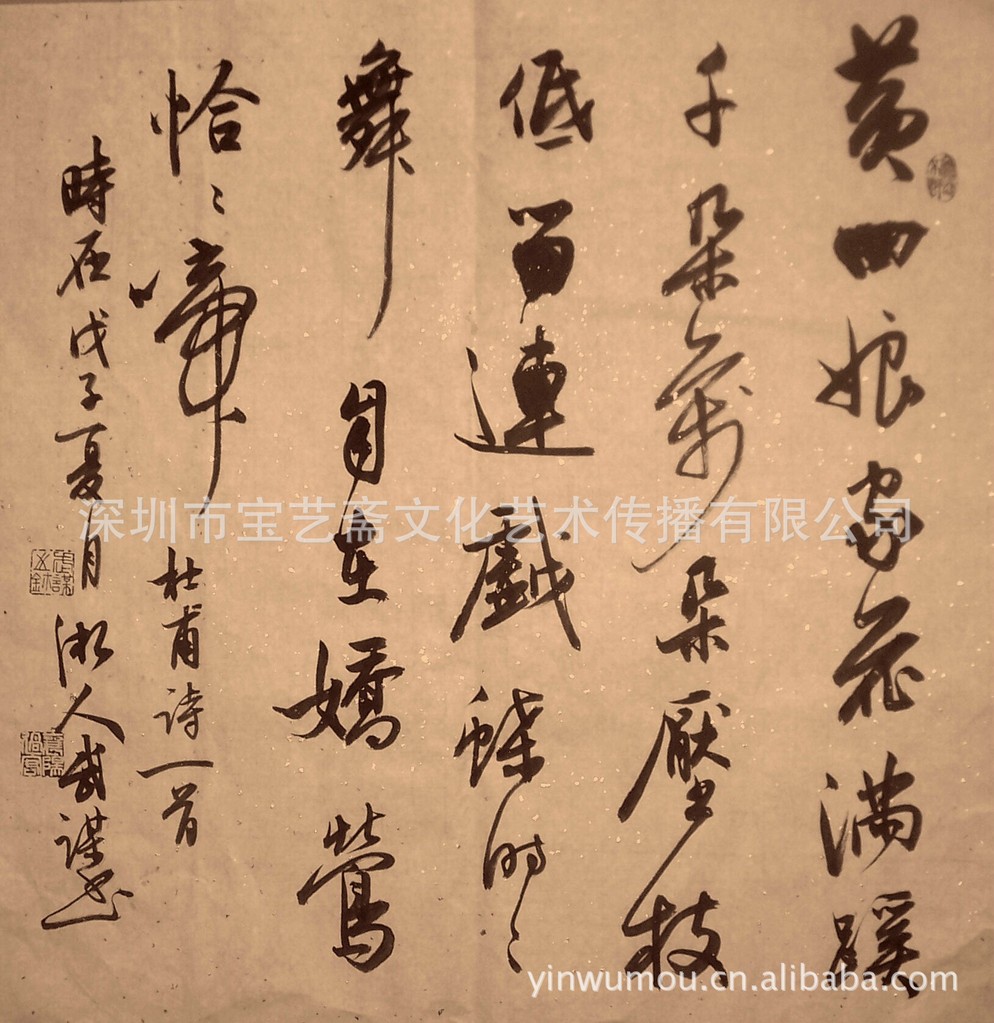 黄四娘家花满蹊
千朵萬朵壓枝
低留連戲蝶时〻
舞自在嬌鶯
恰〻啼
杜甫诗一首
時在戊子夏月湘人武谋书
深圳市宝艺斋文化艺术传播有限公司
yinwumou.cn.alibaba.com